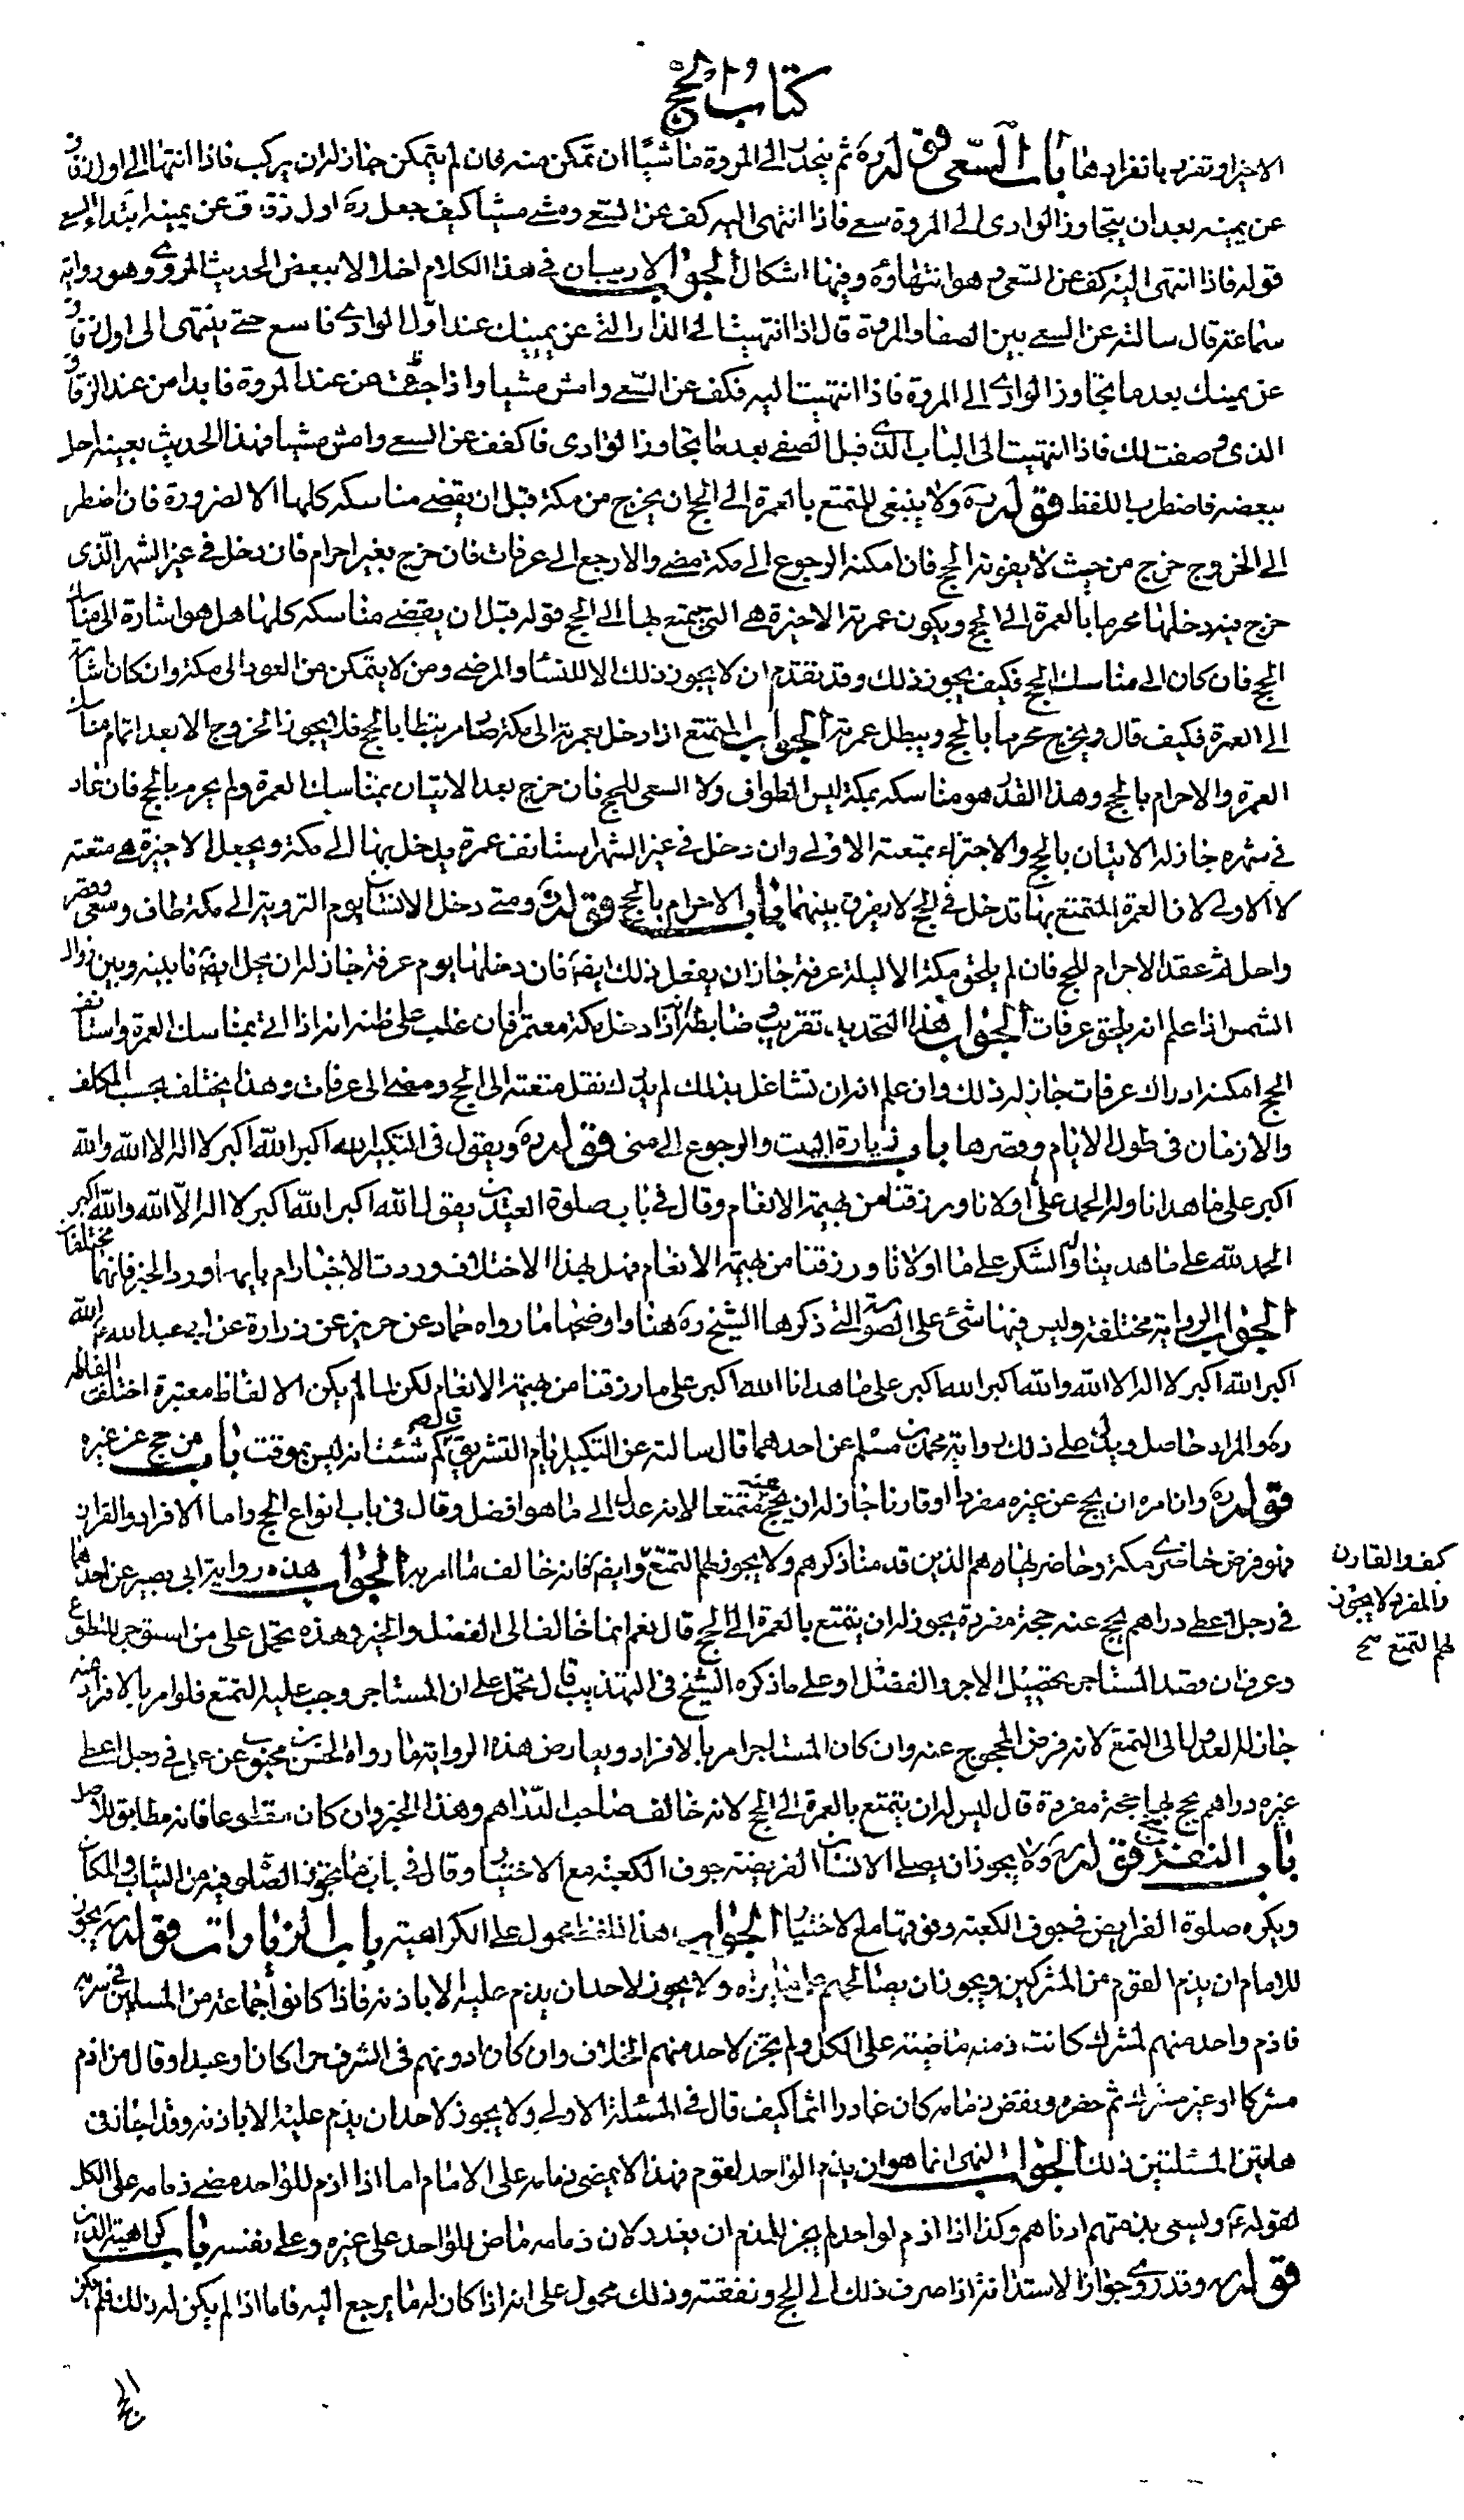 كتاب الحج
الاخيرة وتفرد بانفرادها باب السعى قوله ره ثم ينحدر الى المروة ماشيًا ان تمكن منه فان لم يتمكن جاز له ان يركب فاذا انتها الى اول زقاق
عن يمينه بعد ان يتجاوز الوادى الى المروة سعى فاذا انتهى اليه كف عن السعى ومشى مشيا كيف جعل ره اول زقاق عن يمينه ابتداء السعى
قوله فاذا انتهى اليه كف عن السعى هو انتهاؤه وفيها اشكال الجواب لا ريب ان فى هذا الكلام اخلالا ببعض الحديث المروى وهو رواية
سماعة قال سالته عن السعى بين الصفا والمروة قال اذا انتهيت الى الدار التى عن يمينك عند اول الوادى فاسع حتى ينتهى الى اول زقاق
عن يمينك بعد ما تجاوز الوادى الى المروة فاذا انتهيت اليه فكف عن السعى وامش مشيا واذا جئت من عند المروة فابدا من عند الزقاق
الذى وصفت لك فاذا انتهيت الى الباب الذى قبل الصفى بعد ما تجاوز الوادى فاكفف عن السعى وامش مشيا فهذا الحديث بعينه اخل
ببعضه فاضطرب اللفظ قوله ره ولا ينبغى للمتمتع بالعمرة الى الحج ان يخرج من مكة قبل ان يقضى مناسكه كلها الا لضرورة فان اضطر
الى الخروج خرج من حيث لا يفوته الحج فان امكنه الرجوع الى مكة مضى والا رجع الى عرفات فان خرج بغير احرام فان دخل فى غير الشهر الذى
خرج فيه دخلها محرما بالعمرة الى الحج ويكون عمرته الاخيرة هى التى يتمتع بها الى الحج قوله قبل ان يقضى مناسكه كلها هل هو اشارة الى مناسك
الحج فان كان الى مناسك الحج فكيف يجوز ذلك وقد تقدم ان لا يجوز ذلك الا للنساء والمرضى ومن لا يتمكن من العود الى مكة وان كان اشارة
الى العمرة فكيف قال ويخرج محرما بالحج ويبطل عمرته الجواب المتمتع اذا دخل بعمرته الى مكة صار مرتبطا بالحج فلا يجوز الخروج الا بعد اتمام مناسك
العمرة والاحرام بالحج وهذا القدر هو مناسكه بمكة ليس الطواف ولا السعى للحج فان خرج بعد الاتيان بمناسك العمرة ولم يحرم بالحج فان عاد
فى شهره جاز له الاتيان بالحج والاجتزاء بمتعته الاولى وان دخل فى غير الشهر استانف عمرة يدخل بها الى مكة ويجعل الاخيرة هى متعته
لا الاولى لان العمرة المتمتع بها تدخل فى الحج لا يفرق بينهما باب الاحرام بالحج قوله ره ومتى دخل الانسان يوم التروية الى مكة طاف وسعى وقصر
واحل ثم عقد الاحرام للحج فان لم يلحق مكة الا ليلة عرفة جاز ان يفعل ذلك ايضا فان دخلها يوم عرفة جاز له ان يحل ايضا فيما بينه وبين زوال
الشمس اذا علم انه يلحق عرفات الجواب هذا التحديد تقريب وضابطه انه اذا دخل مكة معتمرا فان غلب على ظنه انه اذا اتى بمناسك العمرة واستانف
الحج امكنه ادراك عرفات جاز له ذلك وان علم انه ان تشاغل بذلك لم يدرك نقل متعته الى الحج ومضى الى عرفات وهذا يختلف بحسب المكلف
والازمان فى طول الايام وقصرها باب زيارة البيت والرجوع الى منى قوله ره ويقول فى التكبير الله اكبر الله اكبر لا اله الا الله والله
اكبر على ما هدانا وله الحمد على ما اولانا ورزقنا من بهيمة الانعام وقال فى باب صلوة العيدين يقول الله اكبر الله اكبر لا اله الا الله والله اكبر
الحمد لله على ما هدينا وله الشكر على ما اولانا ورزقنا من بهيمة الانعام فهل بهذا الاختلاف وردت الاخبار ام بايهما ورد الخبر فانهما مختلفان
الجواب الرواية مختلفة وليس فيها شئ على الصورة التى ذكرها الشيخ ره هنا واوضحها ما رواه حماد عن حريز عن زرارة عن ابى عبد الله ع الله
اكبر الله اكبر لا اله الا الله والله اكبر الله اكبر على ما هدانا الله اكبر على ما رزقنا من بهيمة الانعام لكن لما لم يكن الالفاظ معتبرة اختلف الفاظه
ره والمراد حاصل ويدل على ذلك رواية محمد بن مسلم عن احدهما قال سالته عن التكبير ايام التشريق كم قال كم شئت انه ليس بموقت باب من حج عن غيره
قوله ره وان امره ان يحج عن غيره مفردا او قارنا جاز له ان يحج عنه متمتعا لانه عدل الى ما هو افضل وقال فى باب انواع الحج واما الافراد والقران
فهو فرض حاضرى مكة وحاضريها وهم الذين قدمنا ذكرهم ولا يجوز لهم التمتع وايضا فانه خالف ما امر به الجواب هذه رواية ابى بصير عن احدهما
كيف والقارن
والمفرد لا يجوز
لهم التمتع صح
فى رجل اعطى دراهم يحج عنه حجة مفردة يجوز له ان يتمتع بالعمرة الى الحج قال نعم انما خالف الى الفضل والخير وهذه تحمل على من استوجر للتطوع
وعرف ان قصد المستاجر تحصيل الاجر والفضل او على ما ذكره الشيخ فى التهذيب قال يحتمل على ان المستاجر وجب عليه التمتع فلو امر بالافراد عنه
جاز له العدول الى التمتع لانه فرض المحجوج عنه وان كان المستاجر امر بالافراد ويعارض هذه الرواية ما رواه الحسن بن محبوب عن على فى رجل اعطى
غيره دراهم يحج بها حجة مفردة قال ليس له ان يتمتع بالعمرة الى الحج لانه خالف صاحب الدراهم وهذا الخبر وان كان مقطوعا فانه مطابق للاصل
باب النفر قوله ره ولا يجوز ان يصلى الانسان الفريضة جوف الكعبة مع الاختيار وقال فى باب ما يجوز الصلوة فيه من الثياب والمكان
ويكره صلوة الفرايض فى جوف الكعبة وفوقها مع الاختيار الجواب هذا اللفظ محمول على الكراهية باب الزيادات قوله ره يجوز
للامام ان يذم لقوم من المشركين ويجوز ان يصالحهم على ما يراه ولا يجوز لاحد ان يذم عليه الا باذنه فاذا كانوا جماعة من المسلمين فى سرية
فاذم واحد منهم لمشرك كانت ذمته ماضية على الكل ولم يجز لاحد منهم الخلاف وان كان ادونهم فى الشرف حرا كان او عبدا وقال من اذم
مشركا او غير مشرك ثم حضره ونقض ذمامه كان غادرا اثما كيف قال فى المسئلة الاولى ولا يجوز لاحد ان يذم عليه الا باذنه وقد اجاز فى
هاتين المسئلتين ذلك الجواب النهى انما هو ان يذم الواحد لقوم فهذا لا يمضى ذمامه على الامام اما اذا اذم للواحد مضى ذمامه على الكل
لقوله ع ويسعى بذمتهم ادناهم وكذا اذا اذم لواحد لم يجز للمذم ان يغدر لان ذمامه ماض للواحد على غيره وعلى نفسه باب كراهية الدين
قوله ره وقد روى جواز الاستدانة اذا صرف ذلك الى الحج ونفقته وذلك محمول على انه اذا كان له ما يرجع اليه فاما اذا لم يكن له ذلك فلم يكن
الحج